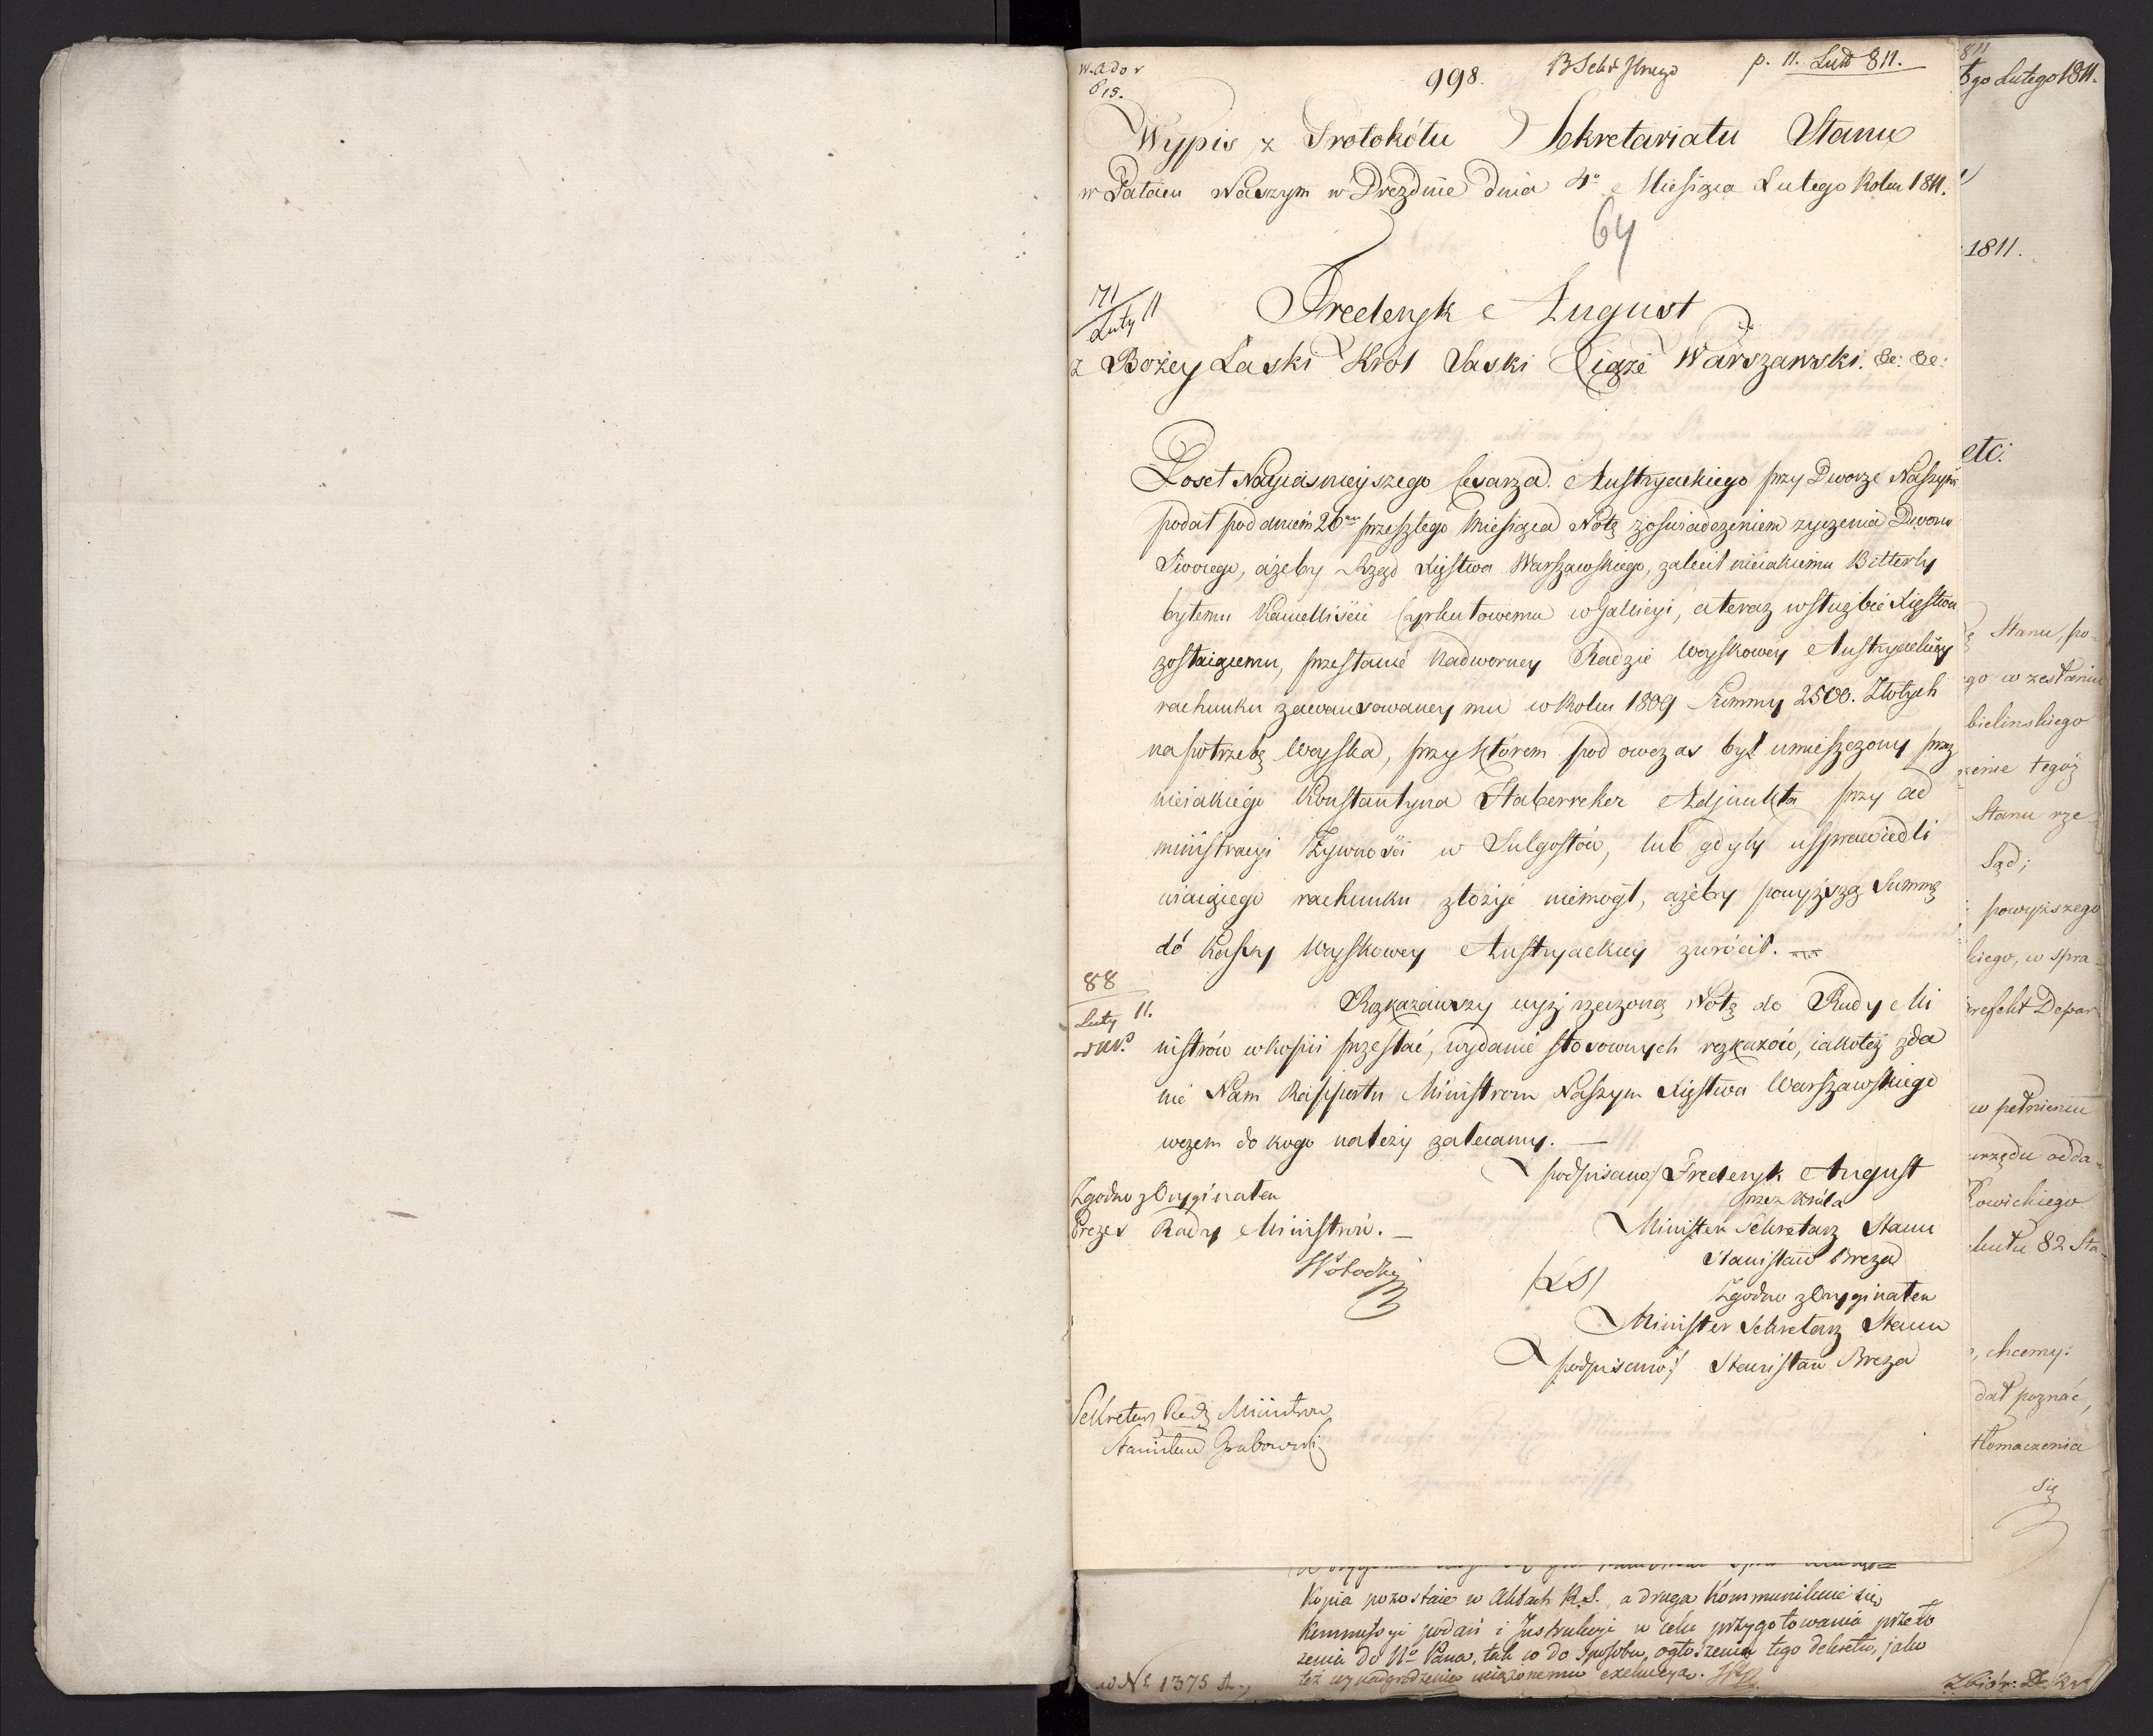 998.
p. 11. Lut 811.
615.
Wypis z Protokółu Sekretariatu Stanu
w Pałacu Naszym w Dreźnie dnia 4º Miesiąca Lutego Roku 1811.
64
71
Luty 11
Frederyk August
z Bożey Łaski Krol Saski Xiąże Warszawski. &c: &c:
Poseł Nayiasnieyszego Cesarza Austryackiego przy Dworze Naszym
podał pod dniem 26m przeszłego Miesiąca Notę z oświadczeniem zyczenia Dworu
Swoiego, ażeby Rząd Xięstwa Warszawskiego, zalecił nieiakiemu Bitterly
byłemu Kancelliście Cyrkułowemu w Galicyi, a teraz w służbie Xięstwa
zostaiącemu, przesłanie Nadworney Radzie Woyskowey Austryackiey
rachunku zaawansowaney mu w Roku 1809 Summy 2500. Złotych
na potrzebę Woyska, przy którem pod owczas był umieszczony przez
nieiakiego Konstantyna Haberreker Adjunkta przy ad
ministracyi Żywności w Sulgostow, lub gdyby usprawiedli
wiaiącego rachunku złożyć niemogł, ażeby powyższą Summę
do Kassy Woyskowey Austryackiey zwrócił.
88
Luty 11.
Rozkazawszy wyż rzeczoną Notę do Rady Mi
nistrów w kopii przesłać, wydanie stosownych rozkazów, iakoteż zda
nie Nam Rapportu Ministrom Naszym Xięstwa Warszawskiego
wczem do kogo należy zalecamy.
podpisano/ Frederyk August
przez Króla
Minister Sekretarz Stanu
Stanisław Breza
/LS/
Zgodno z Oryginałem
Minister Sekretarz Stanu
podpisano/ Stanisław Breza
Zgodno z Oryginałem
Prezes Rady Ministrów.
Sekretarz Rady Ministrów
Stanisław Grabowski
go Lutego 1811.
1811.
etc:
Stanu, po-
go w zesłaniu
bielinskiego
zenie tegóż
Stanu rze-
Sąd;
powyższego
kiego, w spra-
refekt Depar
w pełnieniu
urzędu odda-
Łowickiego
kułu 82 Sta-
, chcemy:
dał poznać,
tłomaczenia
się
Kopia pozostaie w Aktach R.S., a druga Kommunikuie się
Kommissyi podań i Instrukcyi w celu przygotowania przeło
żenia do No Pana, tak co do sposobu ogłoszenia tego dekretu, jako
też wynadgrodzenia
ad No 1375
Zbiór: